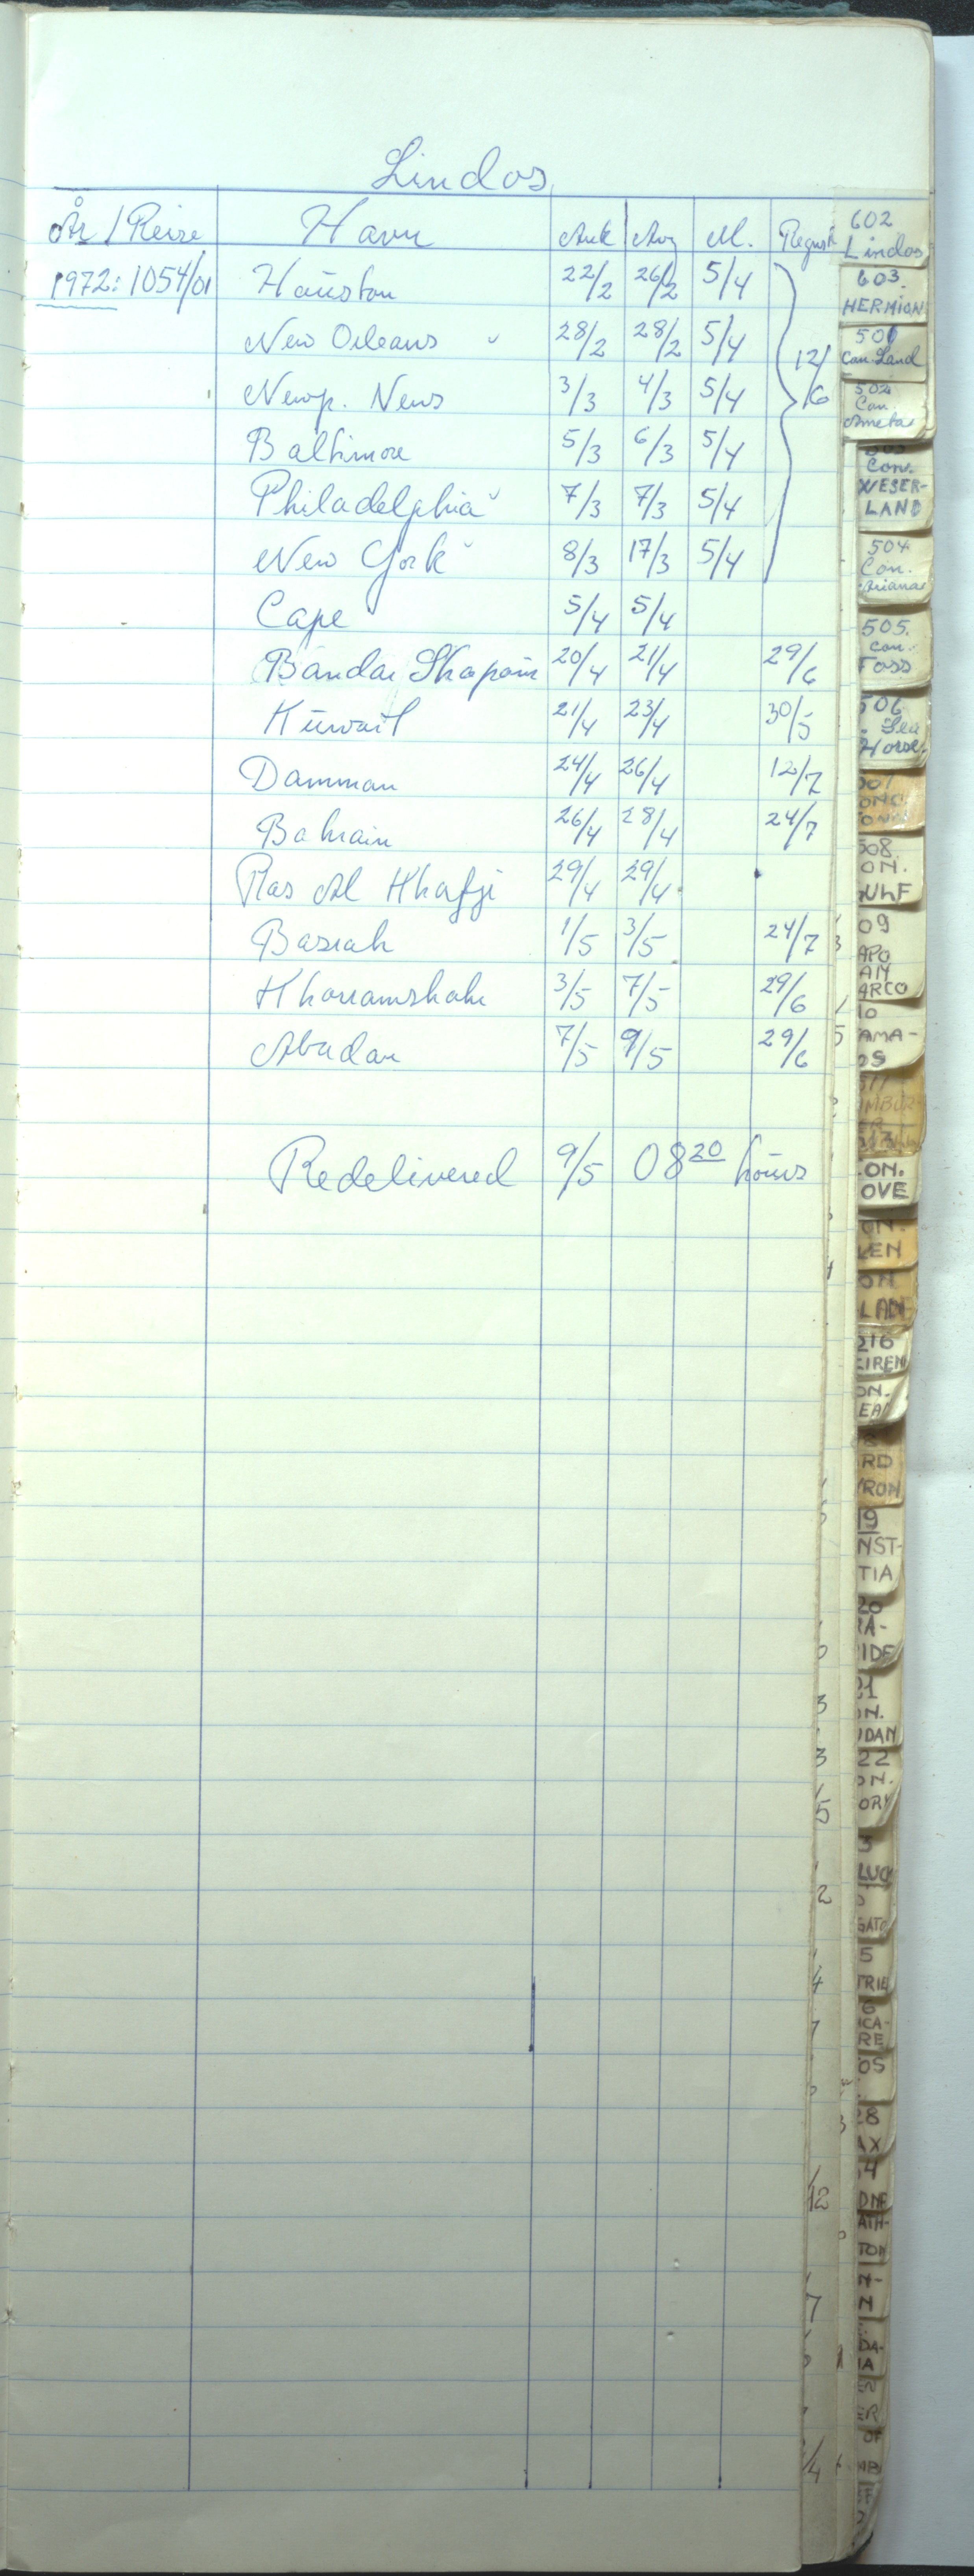 Lindos
År / Reise Havn Ank Avg M. Regnsk
1972: 1054/01 Houston 22/2 26/2 5/4
New Orleans 28/2 28/2 5/4
Newp. News 3/3 4/3 5/4 12/6
Baltimore 5/3 6/3 5/4
Philadelphia 7/3 7/3 5/4
New York 8/3 17/3 5/4
Cape 5/4 5/4
Bandar Shapour 20/4 21/4 29/6
Kuwait 21/4 23/4 30/5
Damman 24/4 26/4 12/7
Bahrain 26/4 28/4 24/7
Ras Al Khafji 29/4 29/4
Basrah 1/5 3/5 24/7
Khorramshahr 3/5 7/5 29/6
Abadan 7/5 9/5 29/6
Redelivered 9/5 08 20 hours
602
Lindos
603.
HERMION
501
Con. Land
502
Con.
Con.
WESER-
LAND
504
Con.
505.
Con.
Foss
506
Sea
Horse
508
ON.
09
APO
AM
ARCO
10
AMA-
OS
ON.
OVE
ON.
LEN
ON
LAN
216
EIREN
ON.
EA
RD
YRON
19
NST-
TIA
20
RA-
IDE
21
ON.
UDAN
22
ON.
ORY
3
LUC
GATO
5
TRIE
6
ICA-
RE
OS
28
AX
4
DNE
ATH-
TON
N-
N
DA-
IA
ER
OF